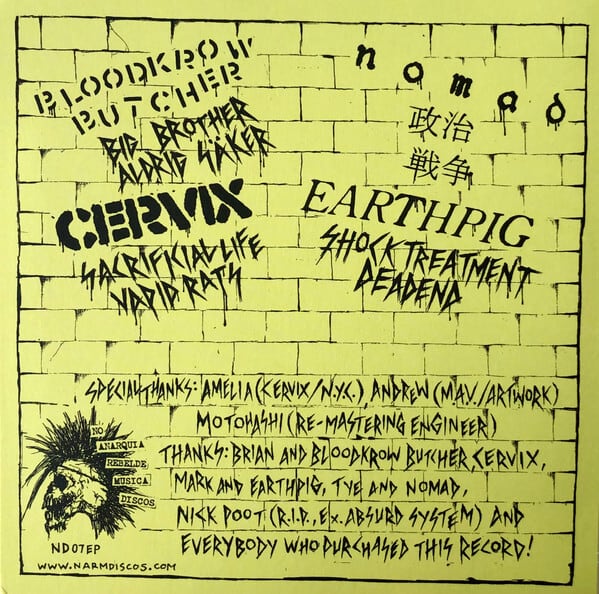 BLOODKROW
BUTCHER
BIG BROTHER
ALDRIG SÄKER
CERVIX
SACRIFICIAL LIFE
VAPID RATS
nomad
政治
戦争
EARTHPIG
SHOCK TREATMENT
DEADEND
SPECIAL THANKS: AMELIA (CERVIX/N.Y.C.) ANDREW (M.A.V./ARTWORK)
MOTOHASHI (RE-MASTERING ENGINEER)
THANKS: BRIAN AND BLOODKROW BUTCHER, CERVIX,
MARK AND EARTHPIG, TYE AND NOMAD,
NICK POOT (R.I.P., Ex. ABSURD SYSTEM) AND
EVERYBODY WHO PURCHASED THIS RECORD!
NO
ANARQUIA
REBELDE
MUSICA
DISCOS
ND07EP
WWW.NARMDISCOS.COM